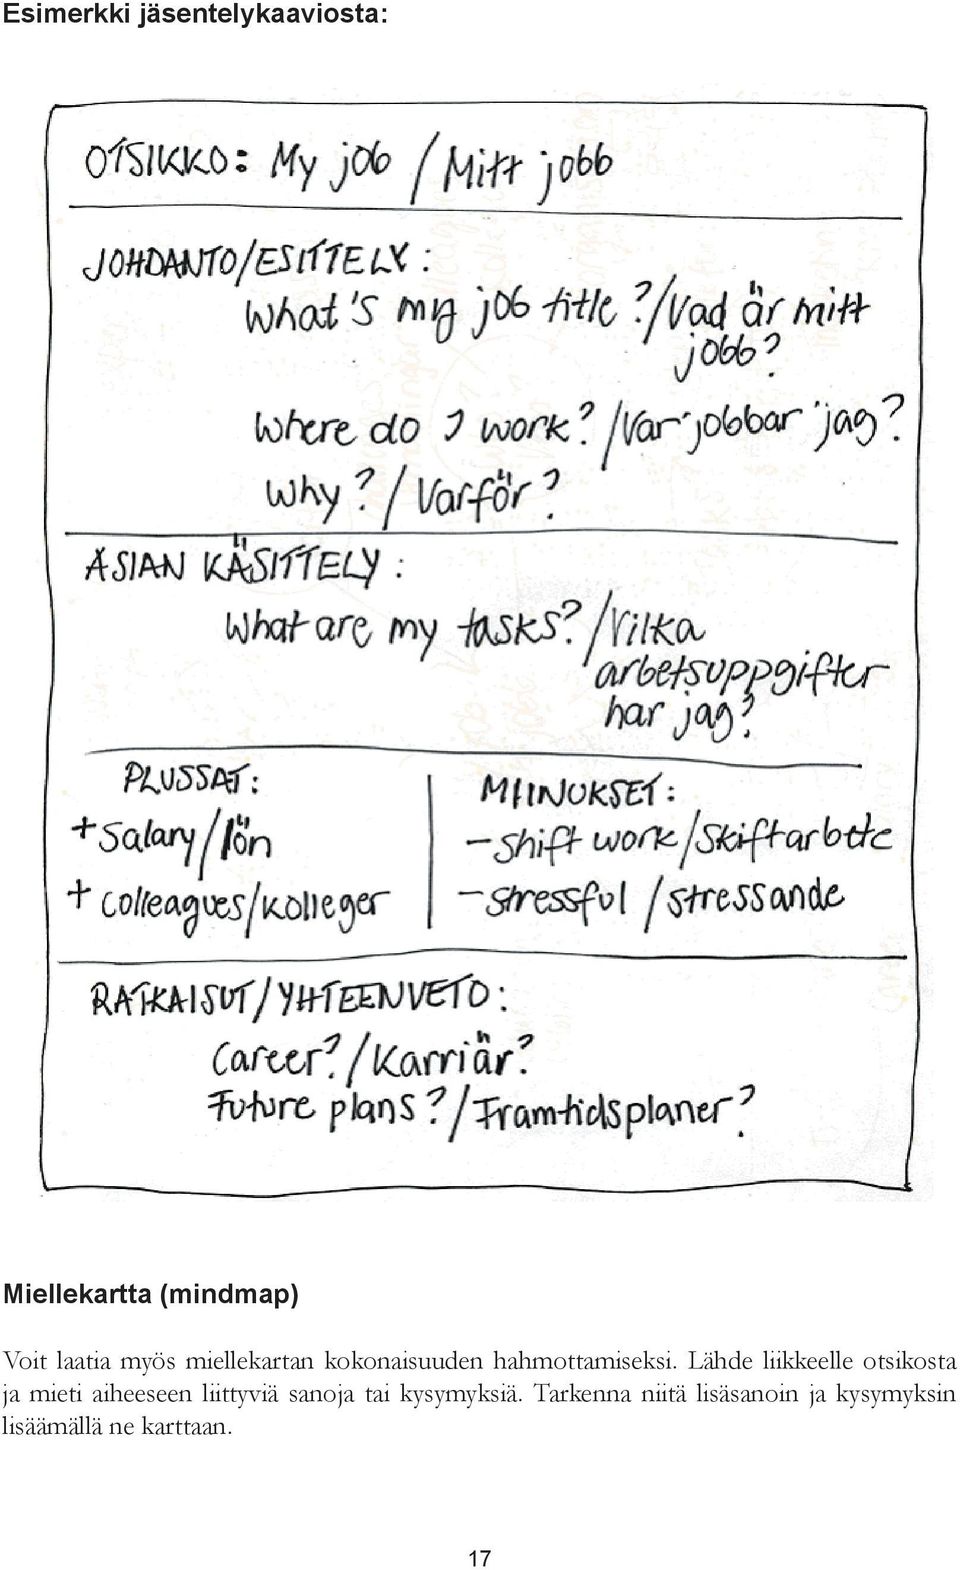 Esimerkki jäsentelykaaviosta:
OTSIKKO: My job / Mitt jobb
JOHDANTO/ESITTELY:
What's my job title?/Vad är mitt
jobb?
Where do I work?/Var jobbar jag?
Why?/Varför?
ASIAN KÄSITTELY:
What are my tasks?/Vilka
arbetsuppgifter
har jag?
PLUSSAT:
+ Salary/lön
+ colleagues/kolleger
MIINUKSET:
- shift work/skiftarbete
- stressful/stressande
RATKAISUT/YHTEENVETO:
Career?/Karriär?
Future plans?/Framtidsplaner?
Miellekartta (mindmap)
Voit laatia myös miellekartan kokonaisuuden hahmottamiseksi. Lähde liikkeelle otsikosta
ja mieti aiheeseen liittyviä sanoja tai kysymyksiä. Tarkenna niitä lisäsanoin ja kysymyksin
lisäämällä ne karttaan.
17